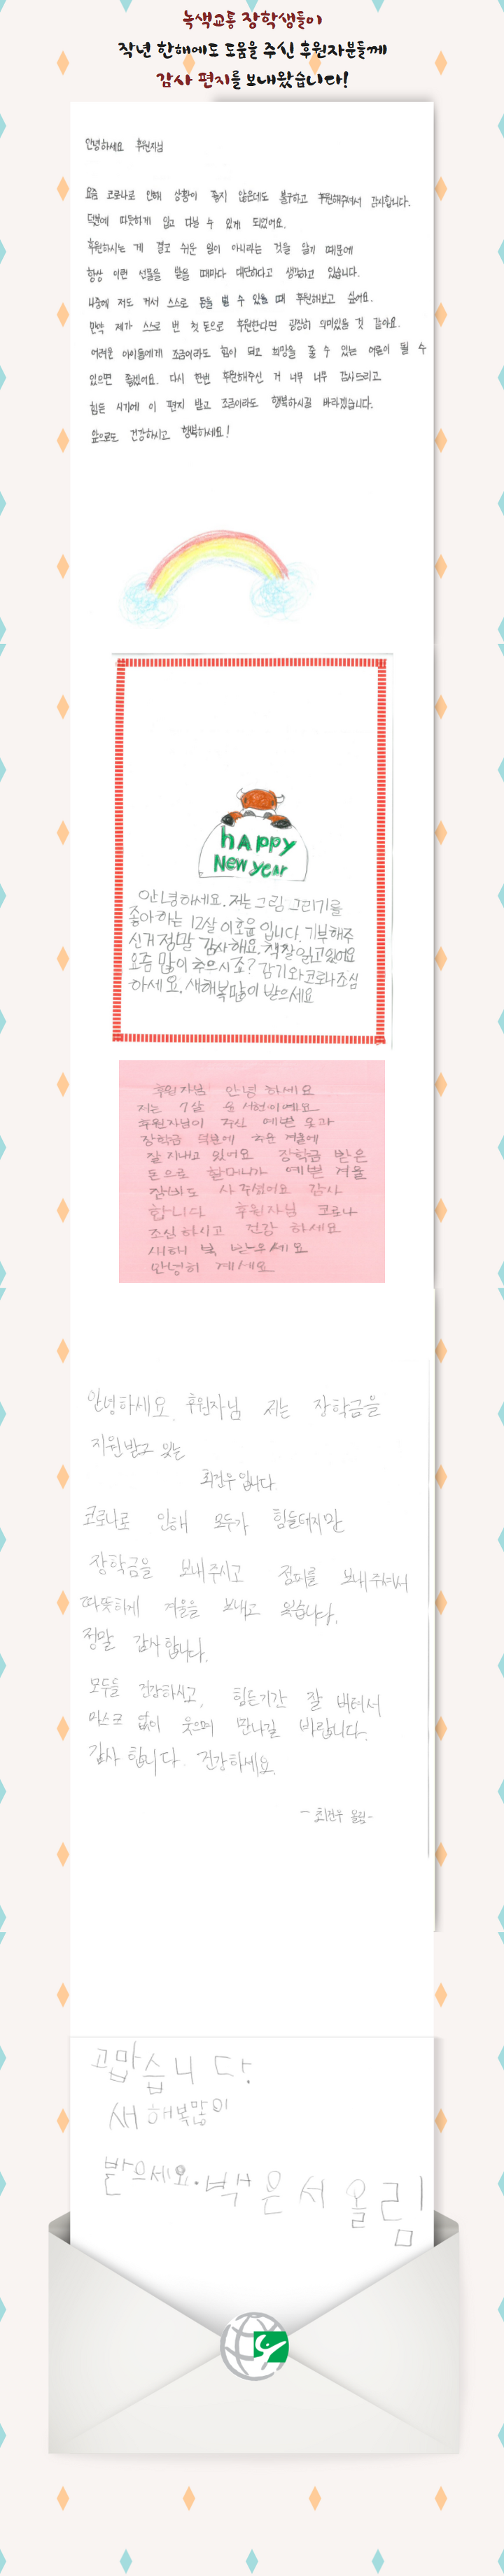 녹색교통 장학생들이
작년 한해에도 도움을 주신 후원자분들께
감사 편지를 보내왔습니다!
안녕하세요 후원자님
요즘 코로나로 인해 상황이 좋지 않은데도 불구하고 후원해주셔서 감사합니다.
덕분에 따뜻하게 입고 다닐 수 있게 되었어요.
후원하시는 게 결코 쉬운 일이 아니라는 것을 알기 때문에
항상 이런 선물을 받을 때마다 대단하다고 생각하고 있습니다.
나중에 저도 커서 스스로 돈을 벌 수 있을 때 후원해보고 싶어요.
만약 제가 스스로 번 첫 돈으로 후원한다면 굉장히 의미있을 것 같아요.
어려운 아이들에게 조금이라도 힘이 되고 희망을 줄 수 있는 어른이 될 수
있으면 좋겠어요. 다시 한번 후원해주신 거 너무 너무 감사드리고
힘든 시기에 이 편지 받고 조금이라도 행복하시길 바라겠습니다.
앞으로도 건강하시고 행복하세요!
happy
New year
안녕하세요. 저는 그림 그리기를
좋아하는 12살 이호윤 입니다. 기부해주
신거 정말 감사해요. 책잘읽고있어요
요즘 많이 추으시죠? 감기와코로나조심
하세요. 새해복많이 받으세요
후원자님 안녕 하세요
저는 7살 윤서현이예요
후원자님이 주신 예쁜 옷과
장학금 덕분에 추운 겨울에
잘 지내고 있어요 장학금 받은
돈으로 할머니가 예쁜 겨울
잠바도 사 주셨어요 감사
합니다 후원자님 코로나
조심 하시고 건강 하세요
새해 복 받우세요
안녕히 계세요
안녕하세요. 후원자님 저는 장학금을
지원받고 있는
최건우입니다
코로나로 인해 모두가 힘들테지만
장학금을 보내주시고 점퍼를 보내주셔서
따뜻하게 겨울을 보내고 있습니다.
정말 감사합니다.
모두들 건강하시고, 힘든기간 잘 버텨서
마스크 없이 웃으며 만나길 바랍니다.
감사 합니다. 건강하세요.
-최건우 올림-
고맙습니다.
새해복많이
받으세요. 박은서 올림